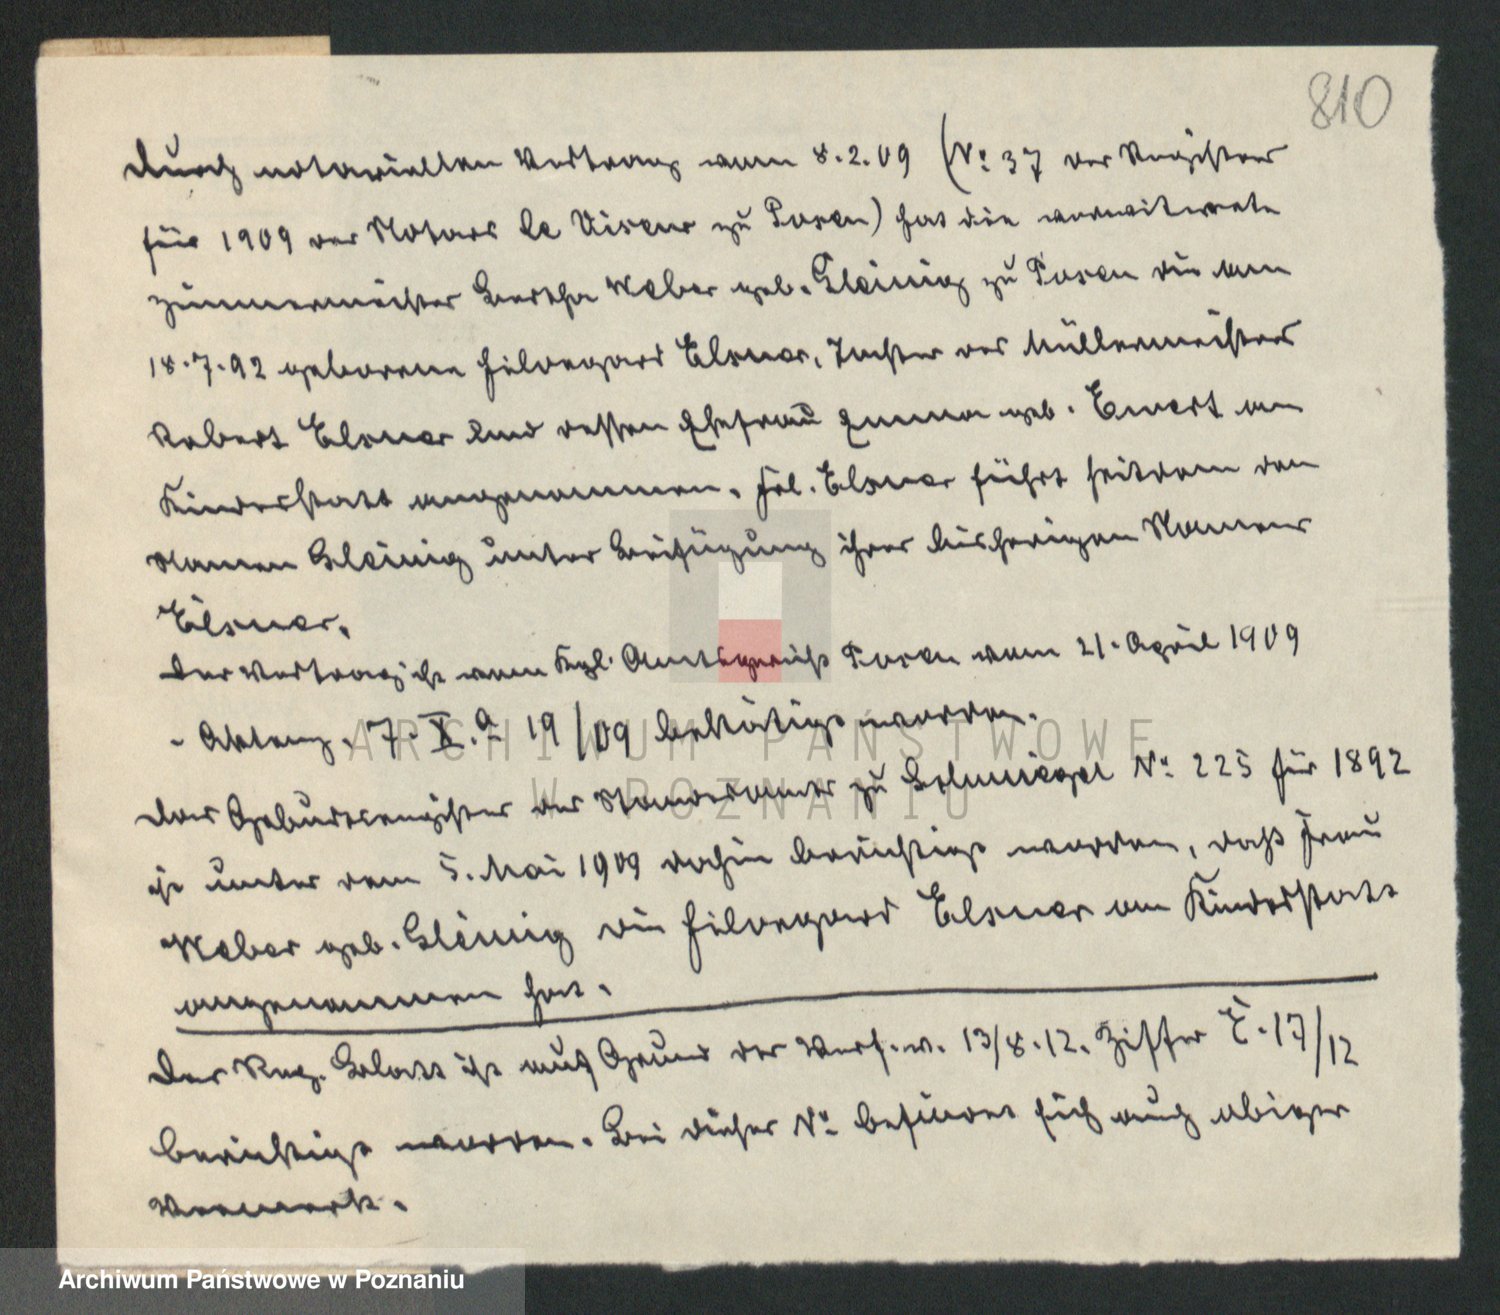 810
Durch notariellen Vertrag vom 8.2.09 (No 37 des Registers
für 1909 des Notars le Viseur zu Posen) hat die verwitwete
Zimmermeister Bertha Weber geb. Gleinig zu Posen die am
18.7.92 geborene Hildegard Elsner, Tochter des Müllermeisters
Robert Elsner und dessen Ehefrau Emma geb. Ewert an
Kindesstatt angenommen. Frl. Elsner führt seitdem den
Namen Gleinig unter Beifügung ihres bisherigen Namens
Elsner.
Der Vertrag ist vom Kgl. Amtsgericht Posen vom 21. April 1909
- Aktenz. 7. X. a 19/09 bestätigt worden.
Das Geburtsregister des Standesamts zu Schmiegel No 225 für 1892
ist unter dem 5. Mai 1909 dahin berichtigt worden, daß Frau
Weber geb. Gleinig die Hildegard Elsner an Kindesstatt
angenommen hat.
Das Reg. Blatt ist auf Grund der Verf. v. 13/8.12. Ziffer E. 17/12
berichtigt worden. Bei dieser No befindet sich auch obiger
Vermerk.
ARCHIWUM PAŃSTWOWE
W POZNANIU
Archiwum Państwowe w Poznaniu